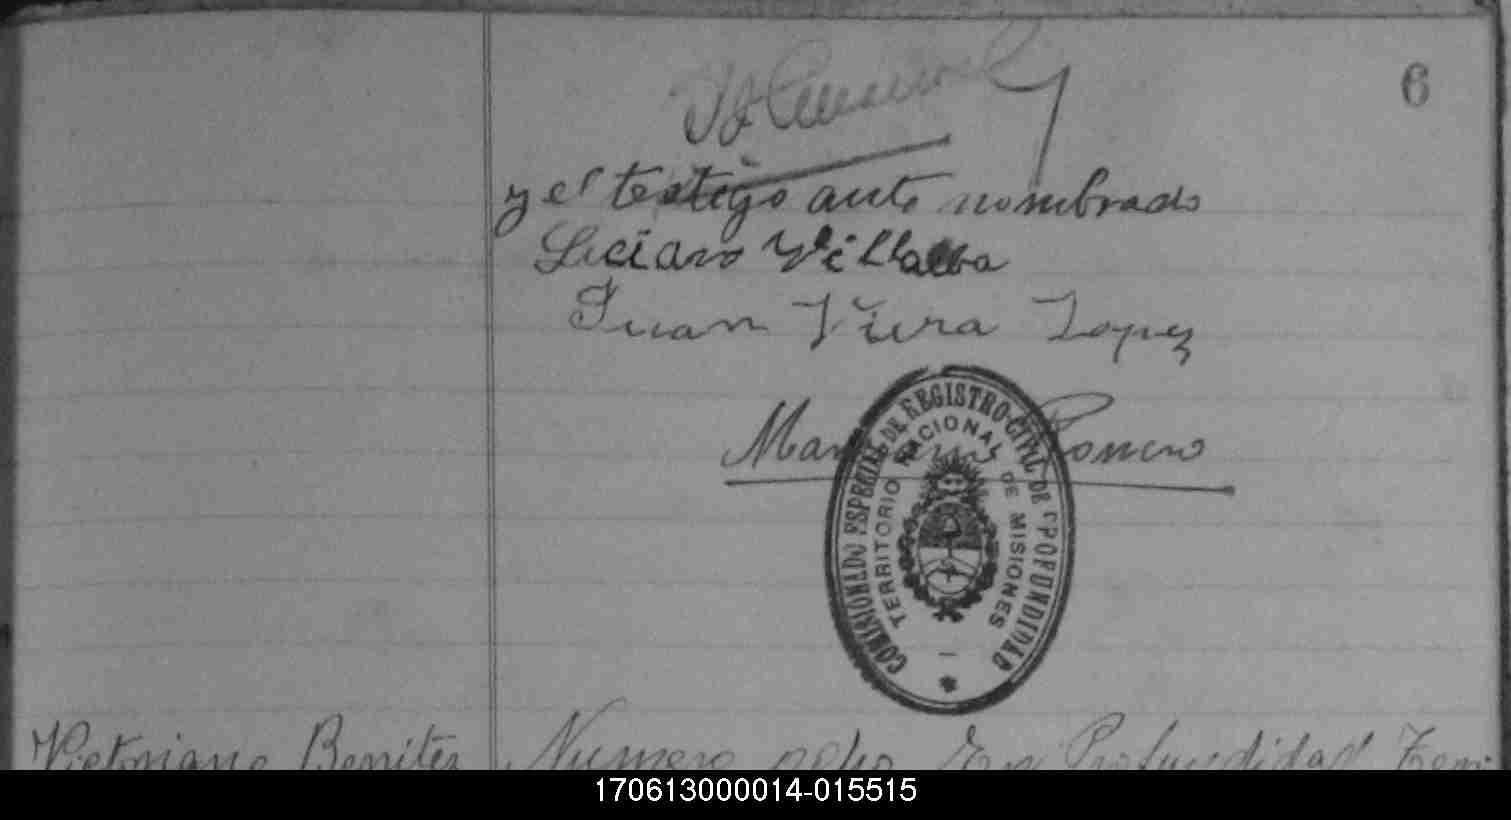 6
y el testigo ante nombrado
Luciano Villalba
Juan Viera Lopez
Romero
COMISIONADO ESPECIAL DE REGISTRO CIVIL DE PROFUNDIDAD
TERRITORIO NACIONAL DE MISIONES
Victoriano Benitez
Numero ocho En Profundidad
170613000014-015515